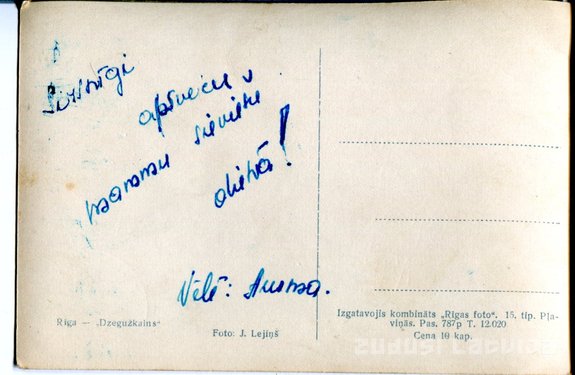 Sirsnīgi
apsveicu
mammu sieviešu
dienā!
Vēlē: Ausma.
Rīga — „Dzegužkalns"
Foto: J. Lejiņš
Izgatavojis kombināts „Rīgas foto“. 15. tip. Pļa-
viņās. Pas. 787p T. 12.020
Cena 10 kap.